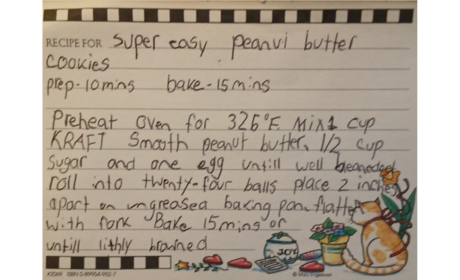 RECIPE FOR super easy peanut butter
cookies
prep-10mins bake-15mins
Preheat Oven for 325°F. Mix 1 cup
KRAFT Smooth peanut butter, 1/2 cup
Sugar and one egg untill well
roll into twenty-four balls place 2 inches
apart on ungreasea baking pan. flatten
with fork Bake 15mins or
untill lithly browned